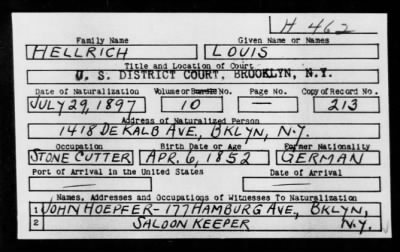 H 462
Family Name Given Name or Names
HELLRICH LOUIS
Title and Location of Court
U. S. DISTRICT COURT, BROOKLYN, N.Y.
Date of Naturalization Volume or Bundle No. Page No. Copy of Record No.
JULY 29, 1897 10 — 213
Address of Naturalized Person
1418 DE KALB AVE., BKLYN, N.Y.
Occupation Birth Date or Age Former Nationality
STONE CUTTER APR. 6, 1852 GERMAN
Port of Arrival in the United States Date of Arrival
— —
Names, Addresses and Occupations of Witnesses To Naturalization
1 JOHN HOEPFER - 177 HAMBURG AVE, BKLYN,
2 SALOON KEEPER N.Y.